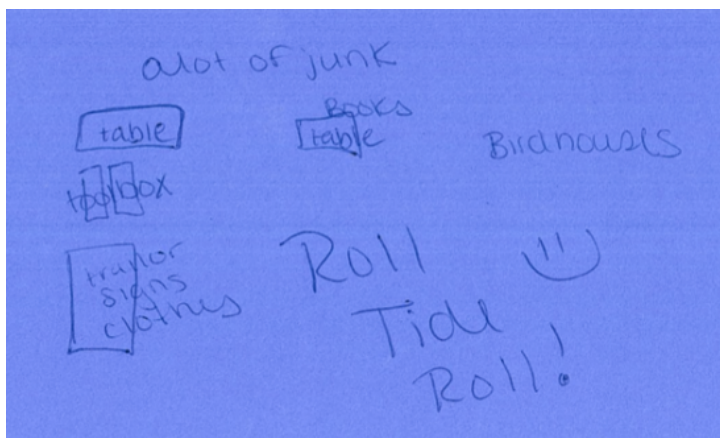 alot of junk
Books
table
table
Birdhouses
toolbox
traylor
signs
clothes
Roll
Tide
Roll!